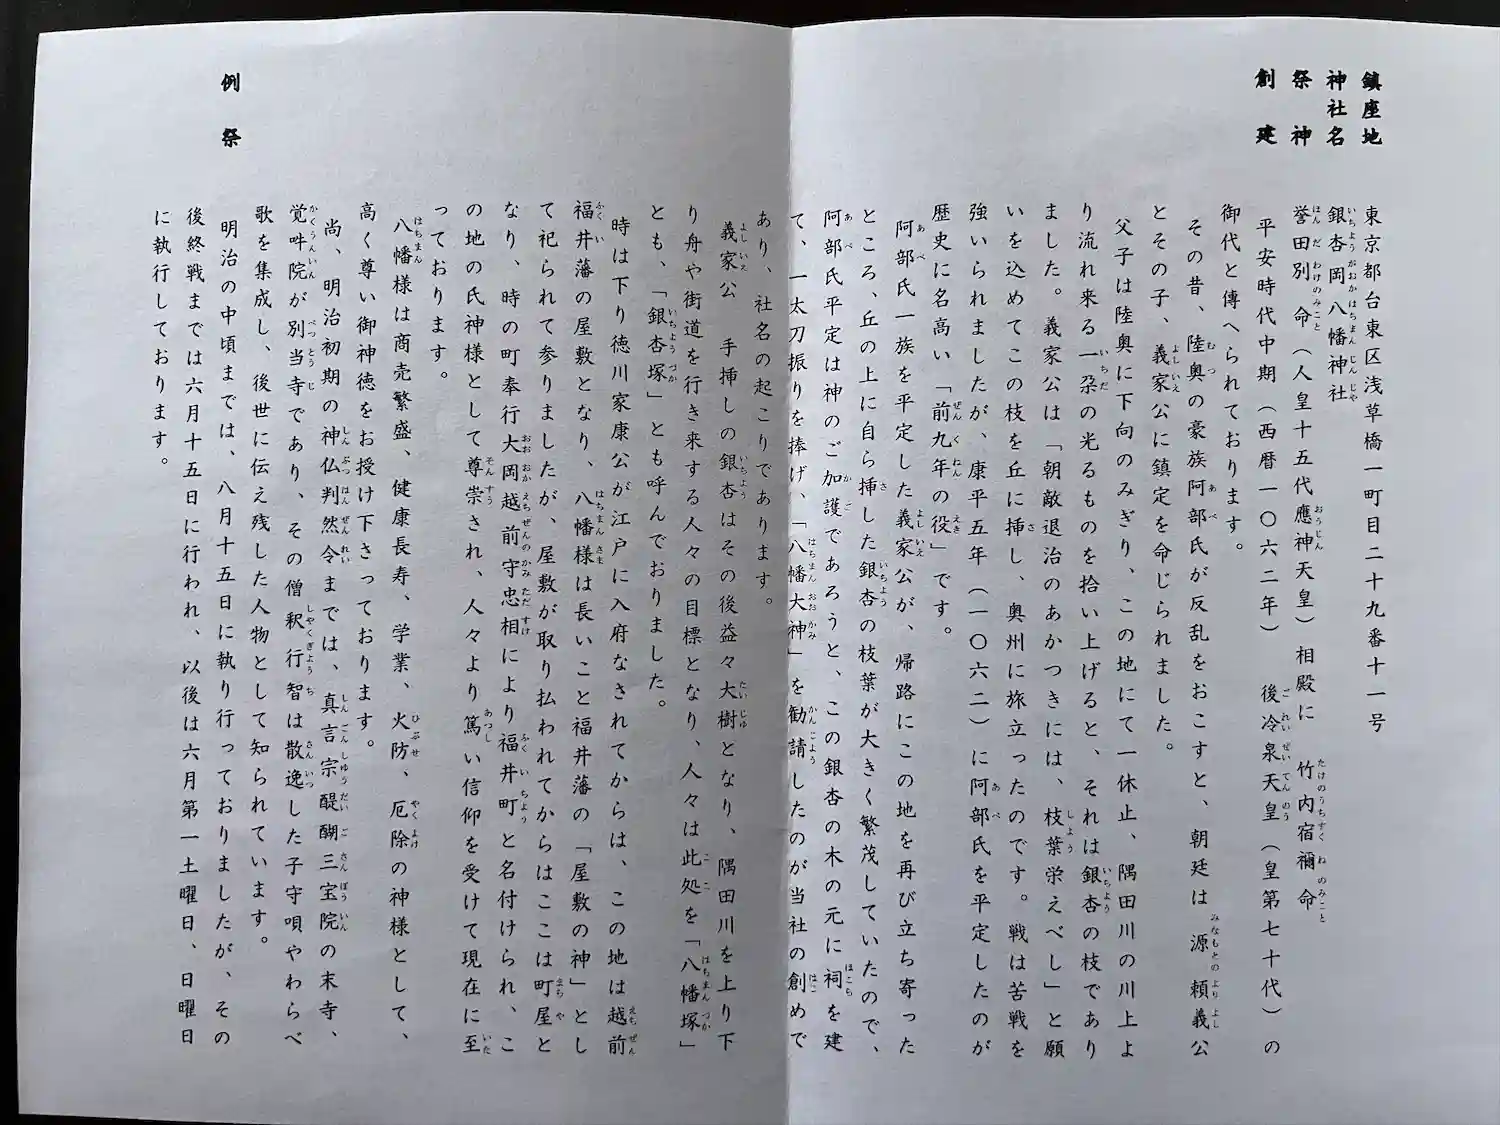 鎮座地　東京都台東区浅草橋一町目二十九番十一号
神社名　銀杏岡八幡神社
祭　神　誉田別命（人皇十五代應神天皇）相殿に　竹内宿禰命
創　建　平安時代中期（西暦一〇六二年）　後冷泉天皇（皇第七十代）の
御代と傳へられております。
その昔、陸奥の豪族阿部氏が反乱をおこすと、朝廷は源頼義公
とその子、義家公に鎮定を命じられました。
父子は陸奥に下向のみぎり、この地にて一休止、隅田川の川上よ
り流れ来る一朶の光るものを拾い上げると、それは銀杏の枝であり
ました。義家公は「朝敵退治のあかつきには、枝葉栄えべし」と願
いを込めてこの枝を丘に挿し、奥州に旅立ったのです。戦は苦戦を
強いられましたが、康平五年（一〇六二）に阿部氏を平定したのが
歴史に名高い「前九年の役」です。
阿部氏一族を平定した義家公が、帰路にこの地を再び立ち寄った
ところ、丘の上に自ら挿した銀杏の枝葉が大きく繁茂していたので、
阿部氏平定は神のご加護であろうと、この銀杏の木の元に祠を建
て、一太刀振りを捧げ、「八幡大神」を勧請したのが当社の創めで
あり、社名の起こりであります。
義家公　手挿しの銀杏はその後益々大樹となり、隅田川を上り下
り舟や街道を行き来する人々の目標となり、人々は此処を「八幡塚」
とも、「銀杏塚」とも呼んでおりました。
時は下り徳川家康公が江戸に入府なされてからは、この地は越前
福井藩の屋敷となり、八幡様は長いこと福井藩の「屋敷の神」とし
て祀られて参りましたが、屋敷が取り払われてからはここは町屋と
なり、時の町奉行大岡越前守忠相により福井町と名付けられ、こ
の地の氏神様として尊崇され、人々より篤い信仰を受けて現在に至
っております。
八幡様は商売繁盛、健康長寿、学業、火防、厄除の神様として、
高く尊い御神徳をお授け下さっております。
尚、明治初期の神仏判然令までは、真言宗醍醐三宝院の末寺、
覚吽院が別当寺であり、その僧釈行智は散逸した子守唄やわらべ
歌を集成し、後世に伝え残した人物として知られています。
例　祭　明治の中頃までは、八月十五日に執り行っておりましたが、その
後終戦までは六月十五日に行われ、以後は六月第一土曜日、日曜日
に執行しております。